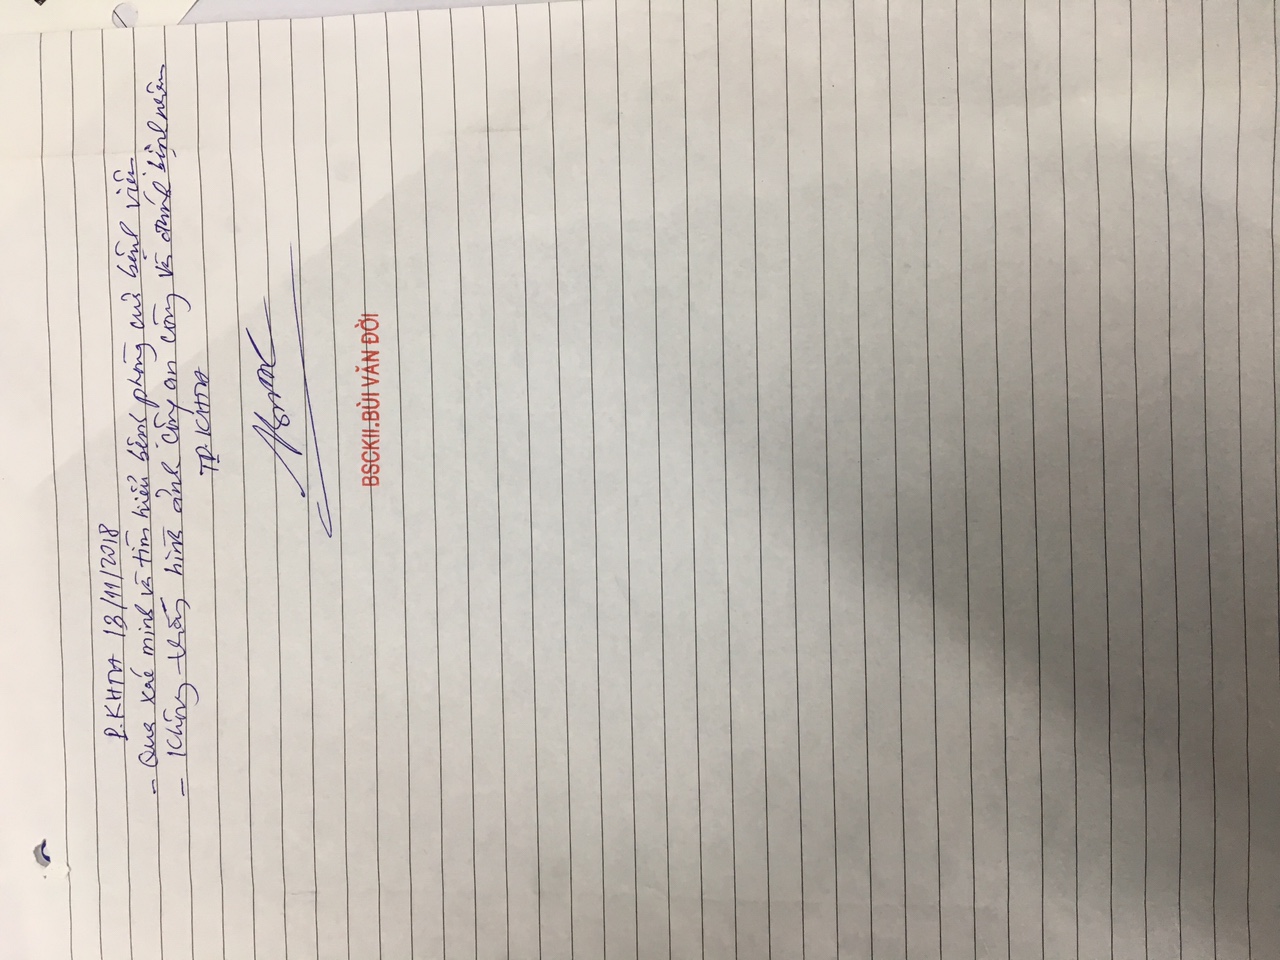 P.KHTH 13/11/2018
- Qua xác minh và tìm hiểu bên phòng của bệnh viện
- Không thấy hình ảnh công an còng và đánh bệnh nhân
TP.KHTH
BSCKII.BÙI VĂN ĐỜI